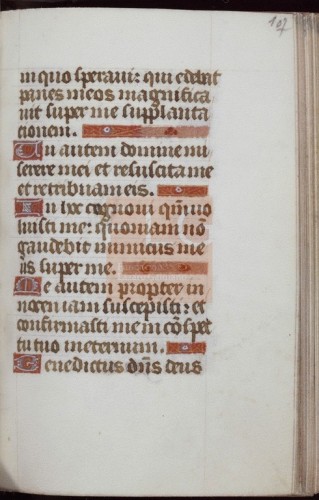 107
in quo speraui: qui edebat
panes meos magnifica
uit super me supplanta
cionem.
Tu autem domine mi
serere mei et resuscita me
et retribuam eis.
In hoc cognoui qm̄ uo
luisti me: quoniam nō
gaudebit inimicus me
us super me.
Me autem propter in
nocenciam suscepisti: et
confirmasti me in cōspec
tu tuo in eternum.
Benedictus dn̄s deus